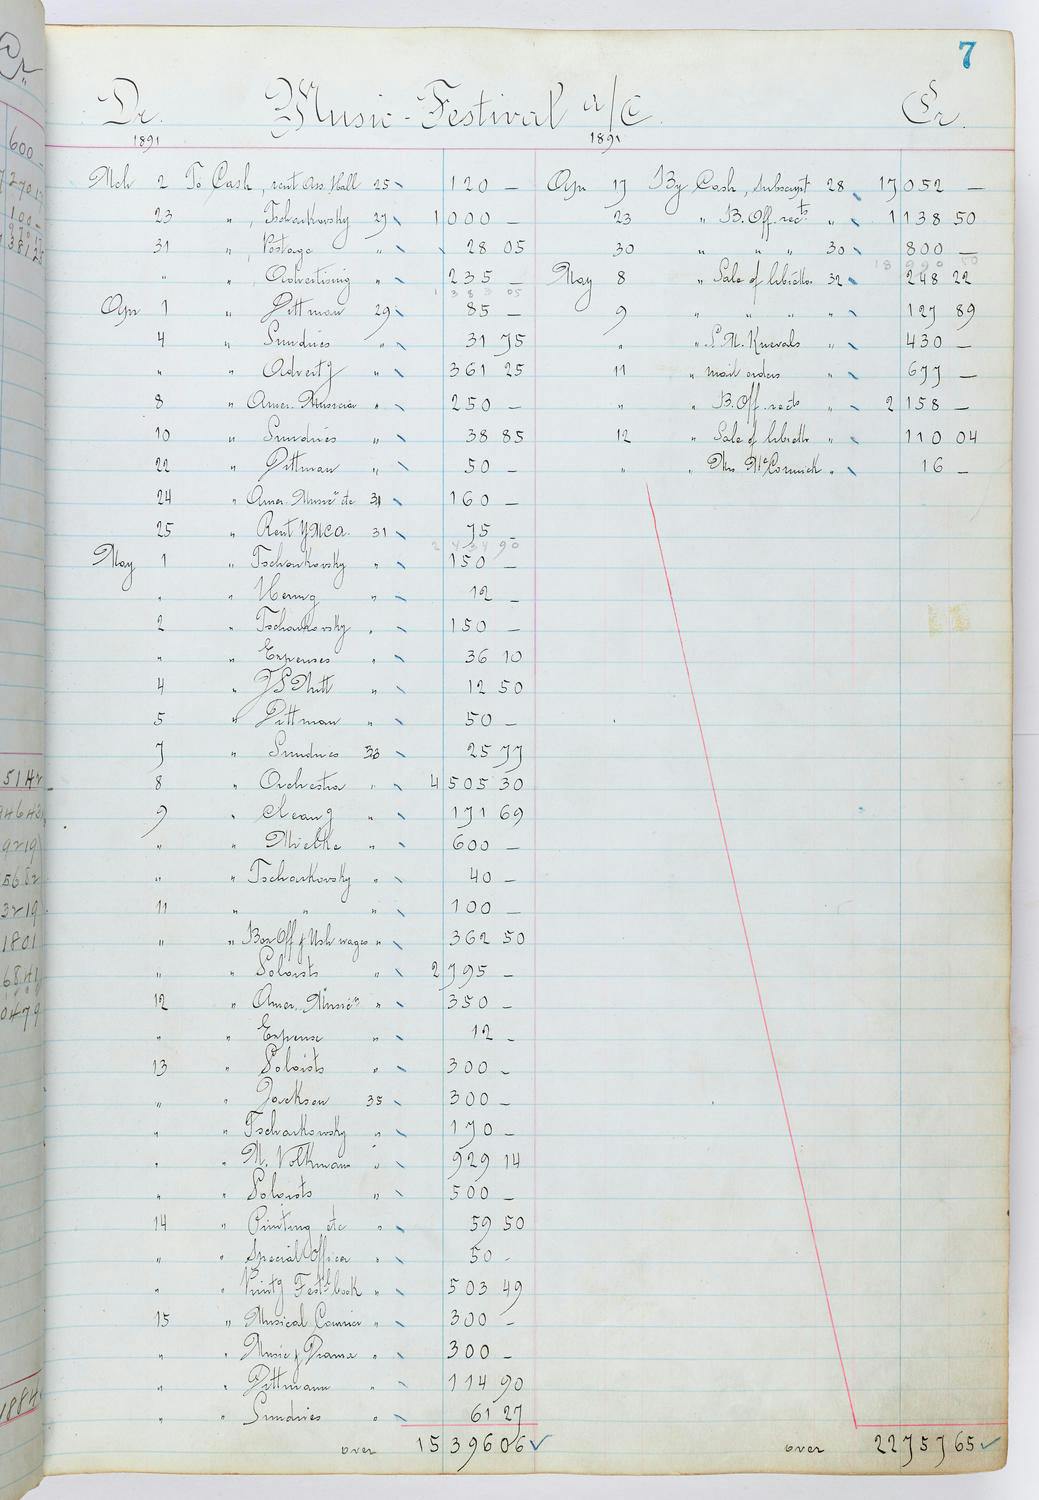 7
Dr. Music-Festival a/c Cr.
1891 1891
Mch 2 To Cash, rent Ass. Hall 25 120 —
23 " , Tschaikovsky 27 1000 —
31 " , Postage " 28 05
" " , Advertising " 235 —
1 383 05
Apr 1 " Pittman 29 85 —
4 " Sundries " 31 75
" " Adverty " 361 25
8 " Amer. Musician " 250 —
10 " Sundries " 38 85
22 " Pittman " 50 —
24 " Amer. Music" etc 31 160 —
25 " Rent YMCA. 31 75 —
2 434 90
May 1 " Tschaikovsky " 150 —
" " " 12 —
2 " Tschaikovsky " 150 —
" " Expenses " 36 10
4 " " 12 50
5 " Pittman " 50 —
7 " Sundries 33 25 77
8 " Orchestra " 4505 30
9 " Cleang " 171 69
" " Mielke " 600 —
" " Tschaikovsky " 40 —
11 " " " 100 —
" " Box Off & Ush wages " 362 50
" " Soloists " 2795 —
12 " Amer. Music" " 350 —
" " Expense " 12 —
13 " Soloists " 300 —
" " Jackson 35 300 —
" " Tschaikowsky " 170 —
" " M. Volkmann " 929 14
" " Soloists " 500 —
14 " Printing etc " 59 50
" " Special Officer " 50 -
" " Printg Festl book " 503 49
15 " Musical Courier " 300 —
" " Music & Drama " 300 —
" " Pittmann " 114 90
" " Sundries " 61 27
over 15396 06
Apr 17 By Cash, Subscript 28 17052 —
23 " B. Off. rects " 1138 50
30 " " " 30 800 —
18 990 50
May 8 " Sale of libretto 32 248 22
9 " " " " 127 89
" " S.M. Knevals " 430 —
11 " mail orders " 677 —
" " B. Off. rects " 2158 —
12 " Sale of libretto " 110 04
" " Mrs McCormick " 16 —
over 22757 65